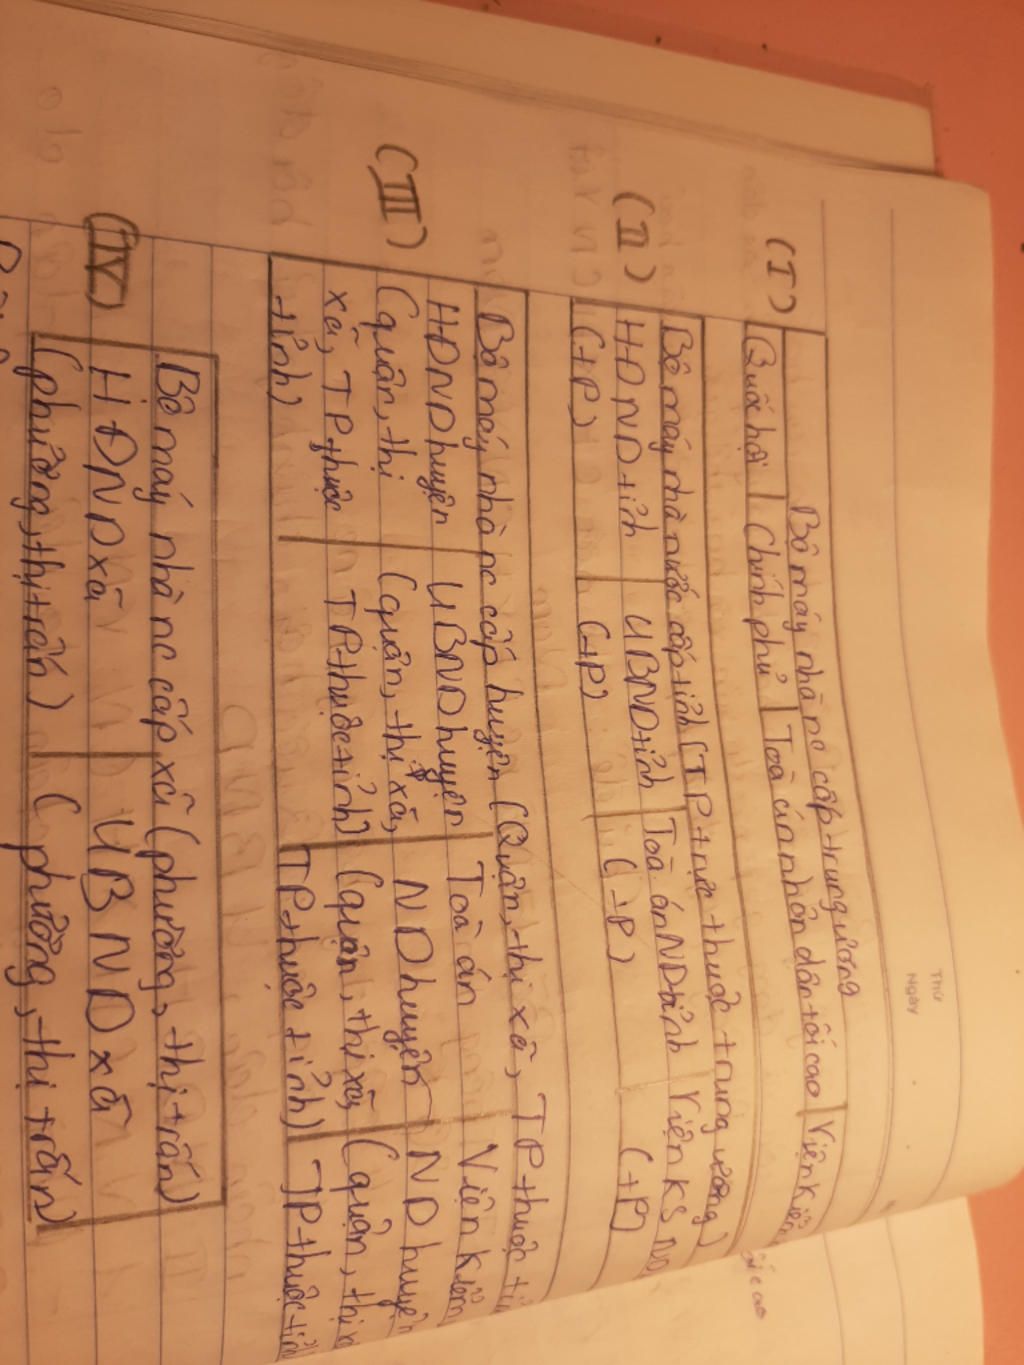 Thứ
Ngày
(I)
Bộ máy nhà nc cấp trung ương
Quốc hội Chính phủ Toà án nhân dân tối cao Viện Kiểm
tối cao
(II)
Bộ máy nhà nước cấp tỉnh (TP trực thuộc trung ương)
HĐND tỉnh UBND tỉnh Toà án ND tỉnh Viện KS ND
(TP) (TP) (TP) (TP)
(III)
Bộ máy nhà nc cấp huyện (Quận, thị xã, TP thuộc tỉ
HĐND huyện UBND huyện Toà án Viện Kiểm
(quận, thị (quận, thị xã, ND huyện ND huyện
xã, TP thuộc TP thuộc tỉnh) (quận, thị xã, (quận, thị x
tỉnh) TP thuộc tỉnh) TP thuộc tỉn
(IV)
Bộ máy nhà nc cấp xã (phường, thị trấn)
HĐND xã UBND xã
(phường, thị trấn) (phường, thị trấn)